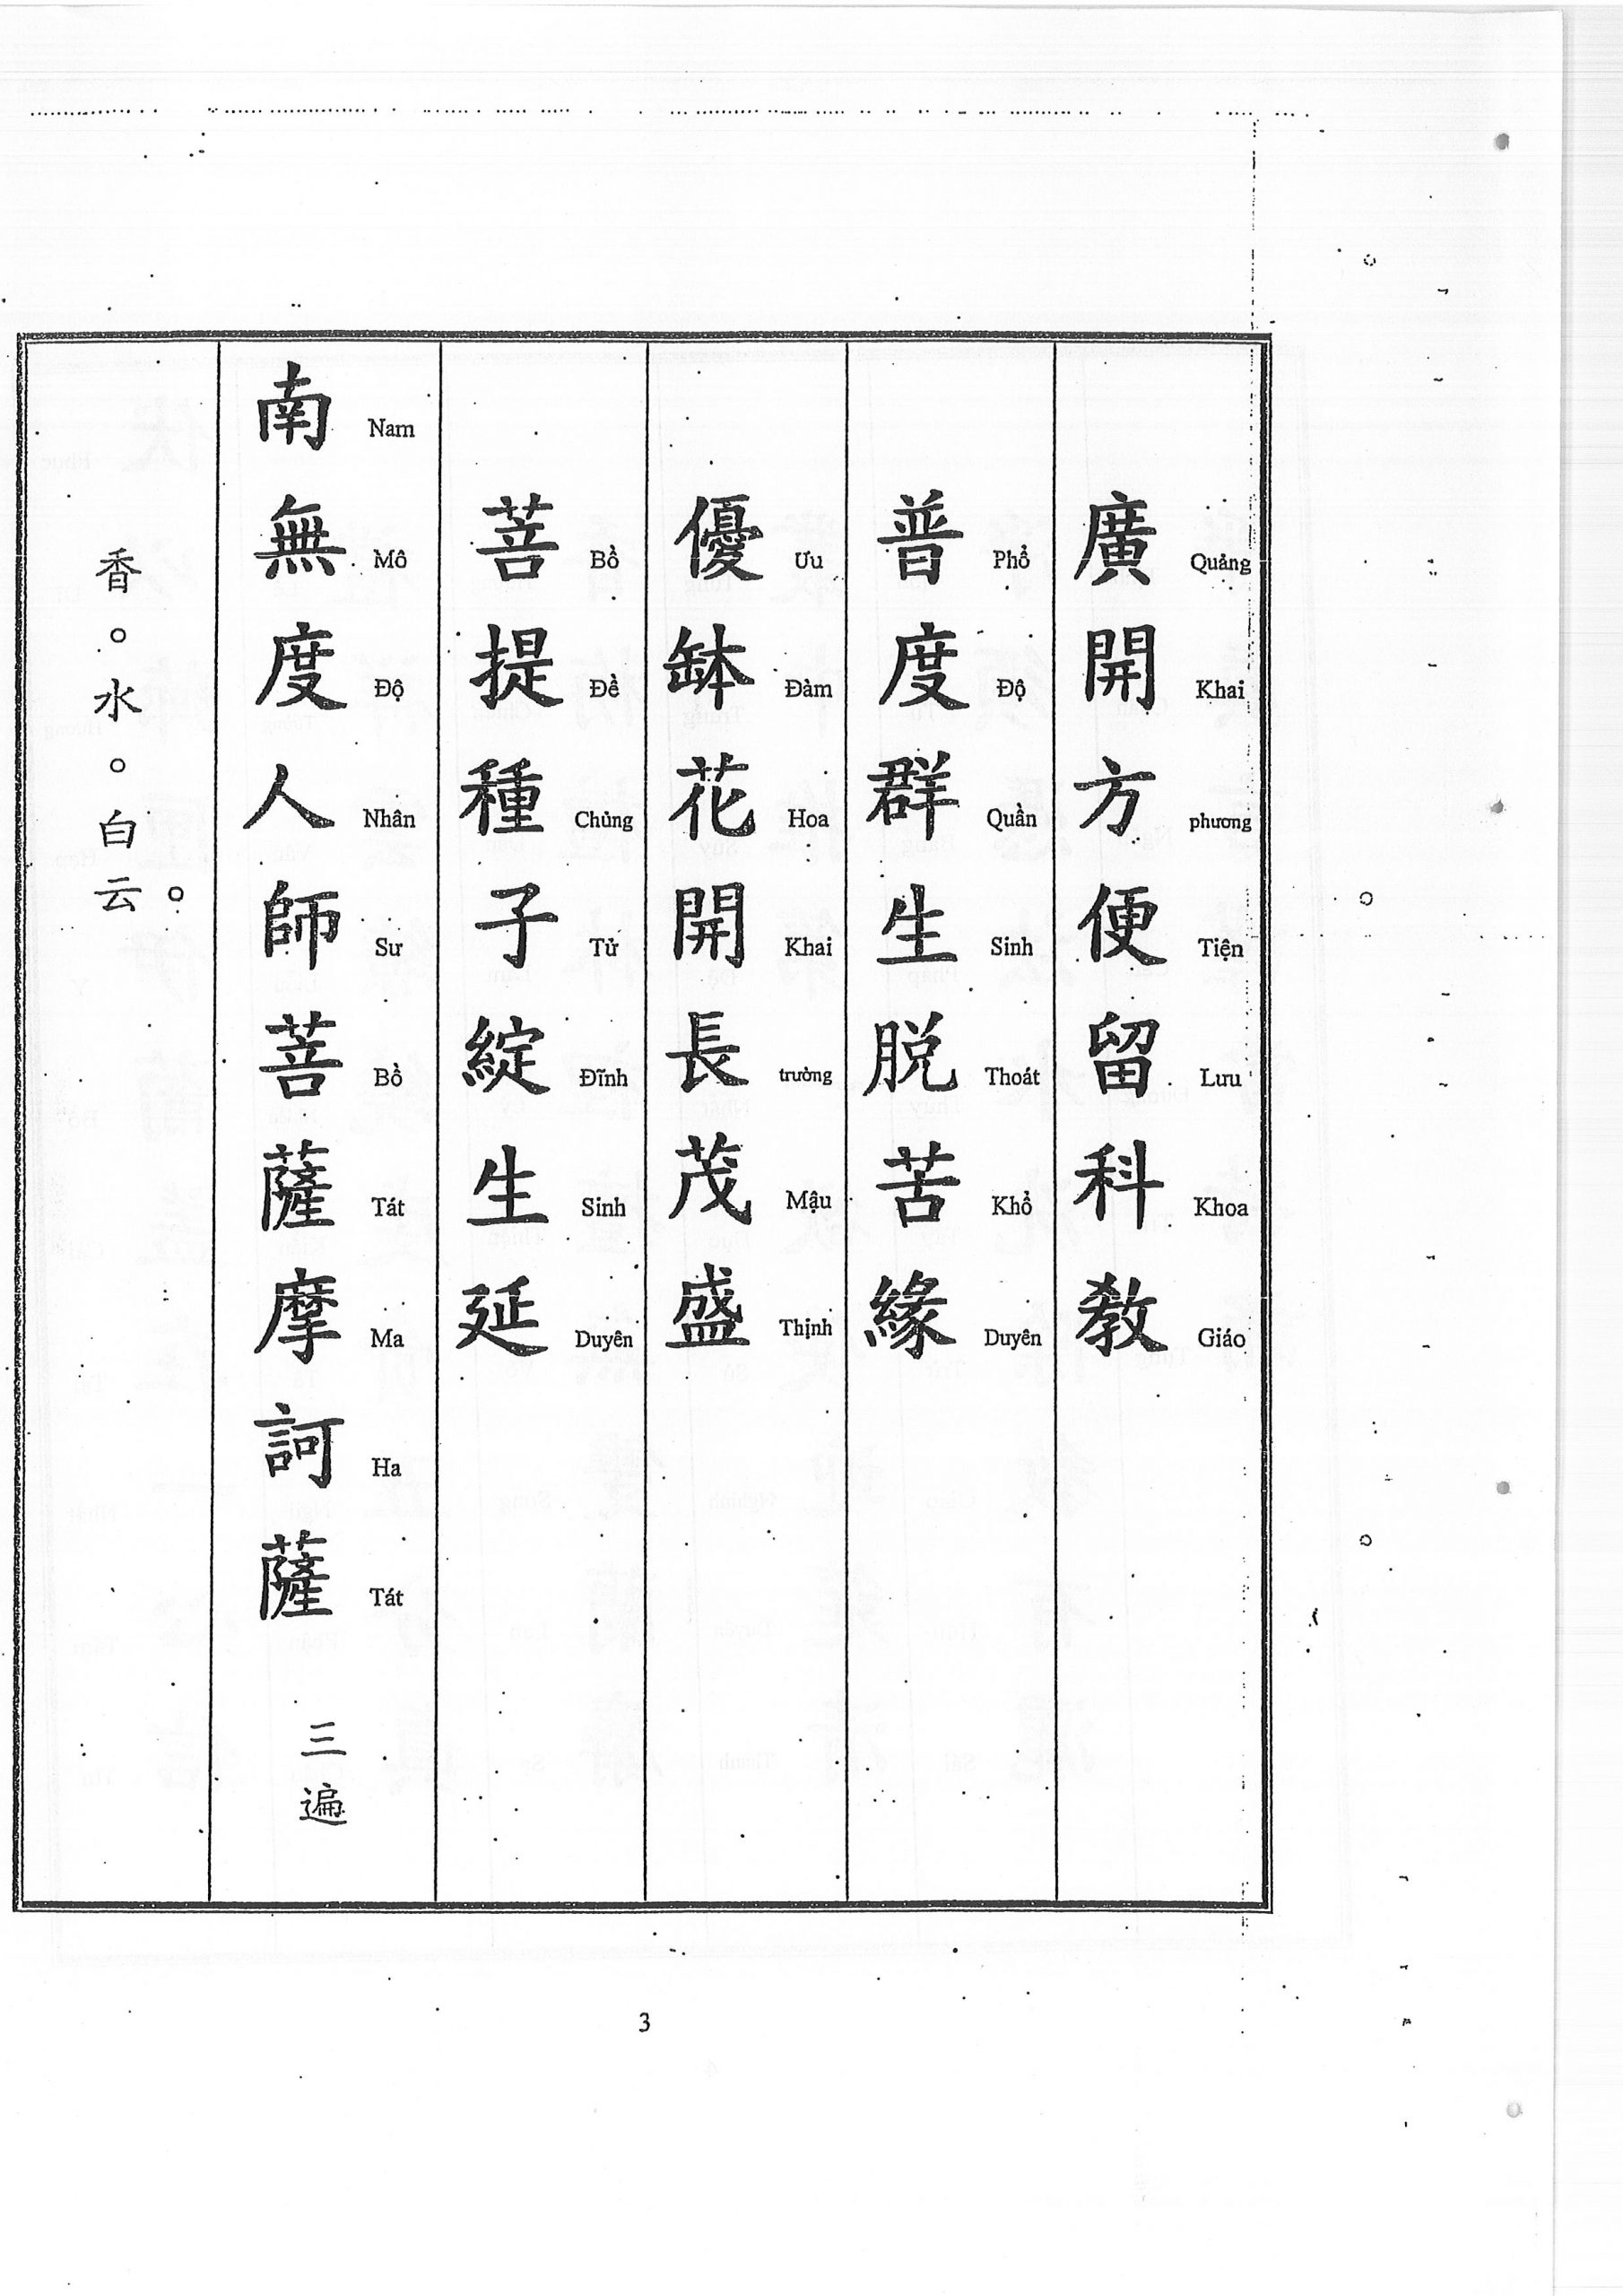 廣開方便留科教
Quảng Khai phương Tiện Lưu Khoa Giáo
普度群生脱苦緣
Phổ Độ Quần Sinh Thoát Khổ Duyên
優鉢花開長茂盛
Ưu Đàm Hoa Khai trường Mậu Thịnh
菩提種子綻生延
Bồ Đề Chủng Tử Đĩnh Sinh Duyên
南無度人師菩薩摩訶薩 三遍
Nam Mô Độ Nhân Sư Bồ Tát Ma Ha Tát
香。水。白云。
3